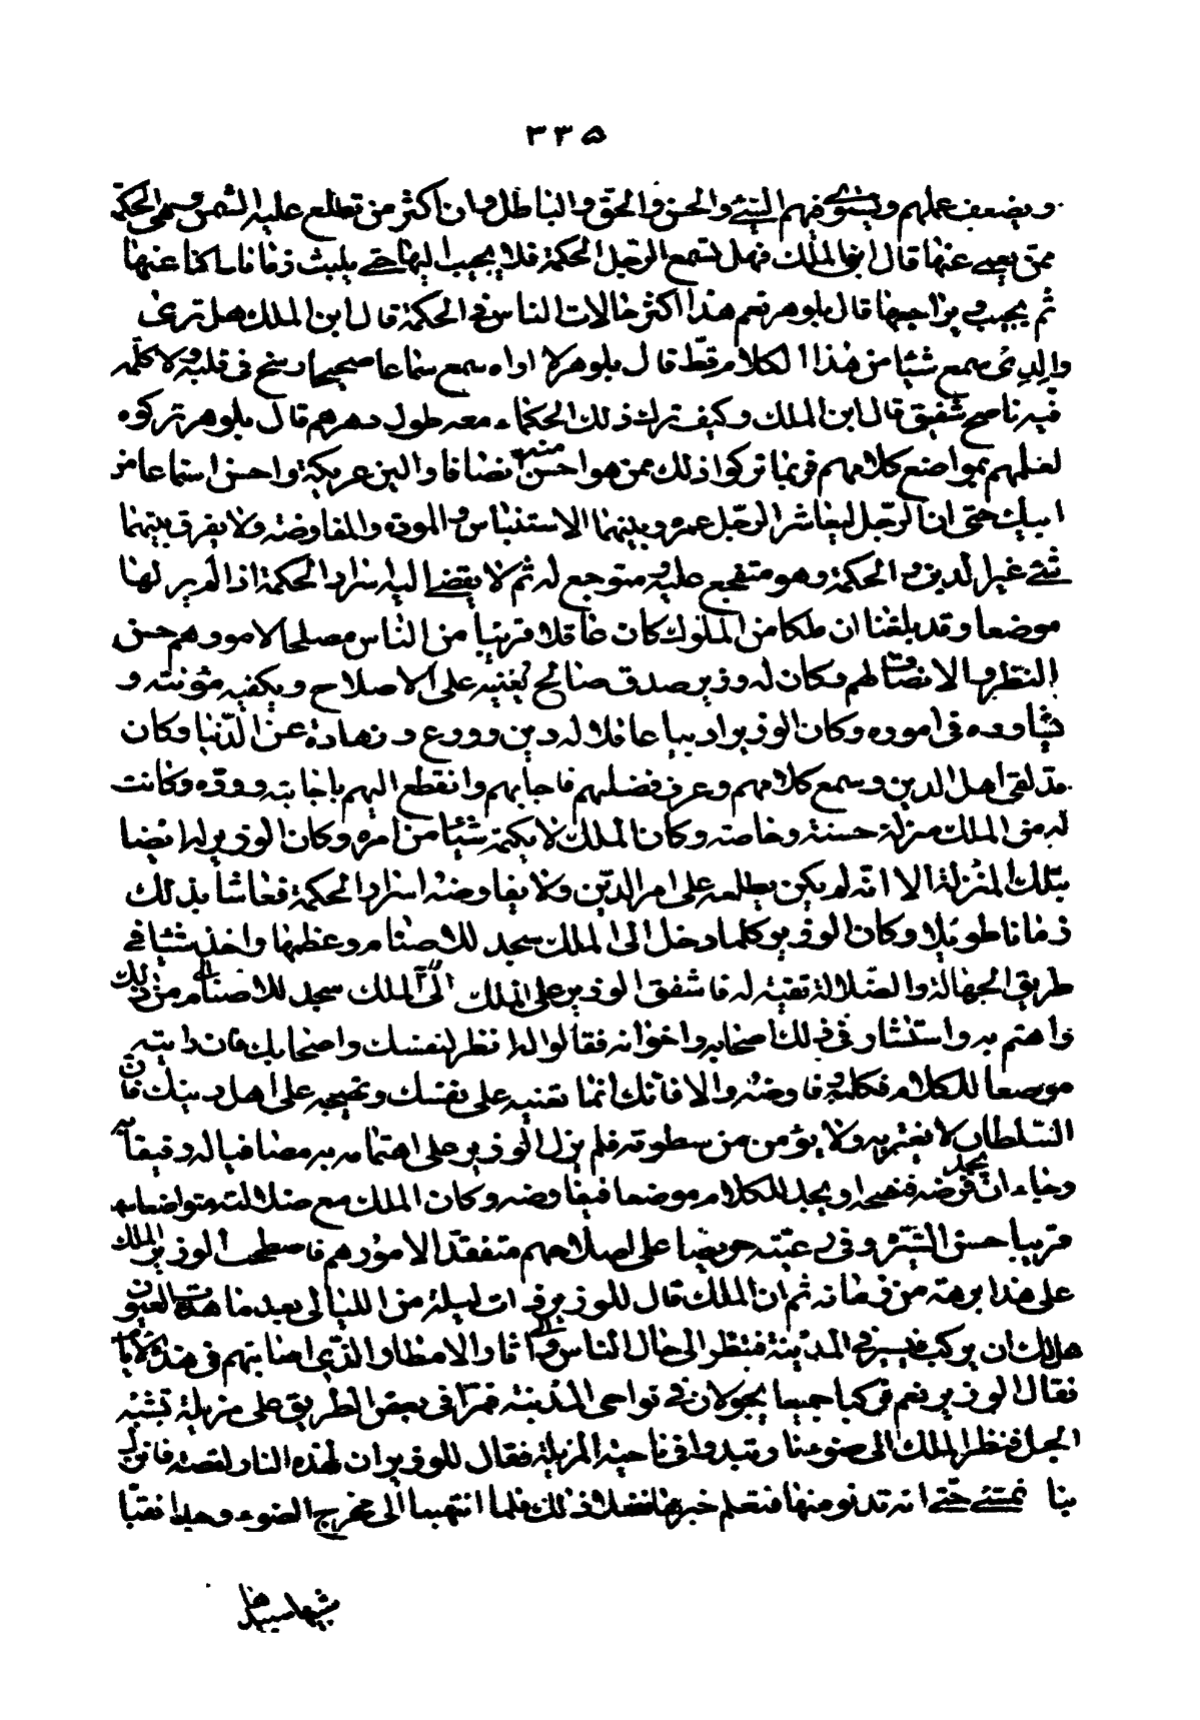 ٣٣۵
ويضعف عملهم ويستوى فيهم السيئ والحسن والحق والباطل وان اكثر من تطلع عليه الشمس ويسمى الحكمة
ممن يعمى عنها قال ابن الملك فهل تسمع الرجل الحكمة فلا يجيب اليها حتى يلبث زمانا ناكبا عنها
ثم يجيب ويراجعها قال بلوهر نعم هذا اكثر حالات الناس فى الحكمة قال ابن الملك هل ترى
والدى سمع شيئا من هذا الكلام قط قال بلوهر لا اراه سمع سماعا صحيحا رسخ فى قلبه ولا كلمه
فيه ناصح شفيق قال ابن الملك وكيف ترك ذلك الحكماء معه طول دهرهم قال بلوهر تركوه
لعلمهم بمواضع كلامهم فربما تركوا ذلك ممن هو احسن منه انصافا والين عريكة واحسن استماعا من
ابيك حتى ان الرجل ليعاشر الرجل عمره وبينهما الاستيناس والمودة والمفاوضة ولا يفرق بينهما
شئ غير الدين والحكمة وهو متفجع عليه ومتوجع له ثم لا يفضى اليه اسرار الحكمة اذا لم ير لها
موضعا وقد بلغنا ان ملكا من الملوك كان عاقلا قريبا من الناس مصلحا لامورهم حسن
النظر والانصاف لهم وكان له وزير صدق صالح يعينه على الاصلاح ويكفيه مؤنته و
يشاوره فى اموره وكان الوزير اديبا عاقلا له دين وورع ونهادة عن الدنيا وكان
قد لقى اهل الدين وسمع كلامهم وعرف فضلهم فاجابهم وانقطع اليهم باخائه ووده وكانت
له من الملك منزلة حسنة وخاصة وكان الملك لا يكتمه شيئا من امره وكان الوزير له ايضا
بتلك المنزلة الا انه لم يكن يطلعه على امر الدين ولا يفاوضه اسرار الحكمة فعاشا بذلك
زمانا طويلا وكان الوزير كلما دخل الى الملك سجد للاصنام وعظمها واخذ شيئا فى
طريق الجهالة والضلالة تقية له فاشفق الوزير على الملك الى الملك سجد للاصنام من ذلك
واهتم به واستشار فى ذلك اصحابه واخوانه فقالوا له انظر لنفسك واصحابك فان رايته
موضعا للكلام فكلمه وفاوضه والا فانك انما تعينه على نفسك وتهيجه على اهل دينك فان
السلطان لا يغتر به ولا يؤمن من سطوته فلم يزل الوزير على اهتمامه به مصافيا له رفيقا به
رجاء ان يجد فرصة فينصحه او يجد للكلام موضعا فيفاوضه وكان الملك مع ضلالته متواضعا سهلا
قريبا حسن السيرة فى رعيته حريصا على اصلاحهم متفقدا لامورهم فاصطحب الوزير الملك
على هذا برهة من زمانه ثم ان الملك قال للوزير ذات ليلة من الليالى بعد ما هدت العيون
هل لك ان يركب فيسير فى المدينة فينظر الى حال الناس وآثار الامطار الذى اصابتهم فى هذه الايام
فقال الوزير نعم فركبا جميعا يجولان فى نواحى المدينة فمرا فى بعض الطريق على مزبلة تشبه
الجبل فنظر الملك الى ضوء نار تبدوا فى ناحية المزبلة فقال للوزير ان لهذه النار لقصة فانزل
بنا نمشى حتى ندنو منها فنعلم خبرها ففعلا ذلك فلما انتهيا الى مخرج الضوء وجدا نقبا
شبيها